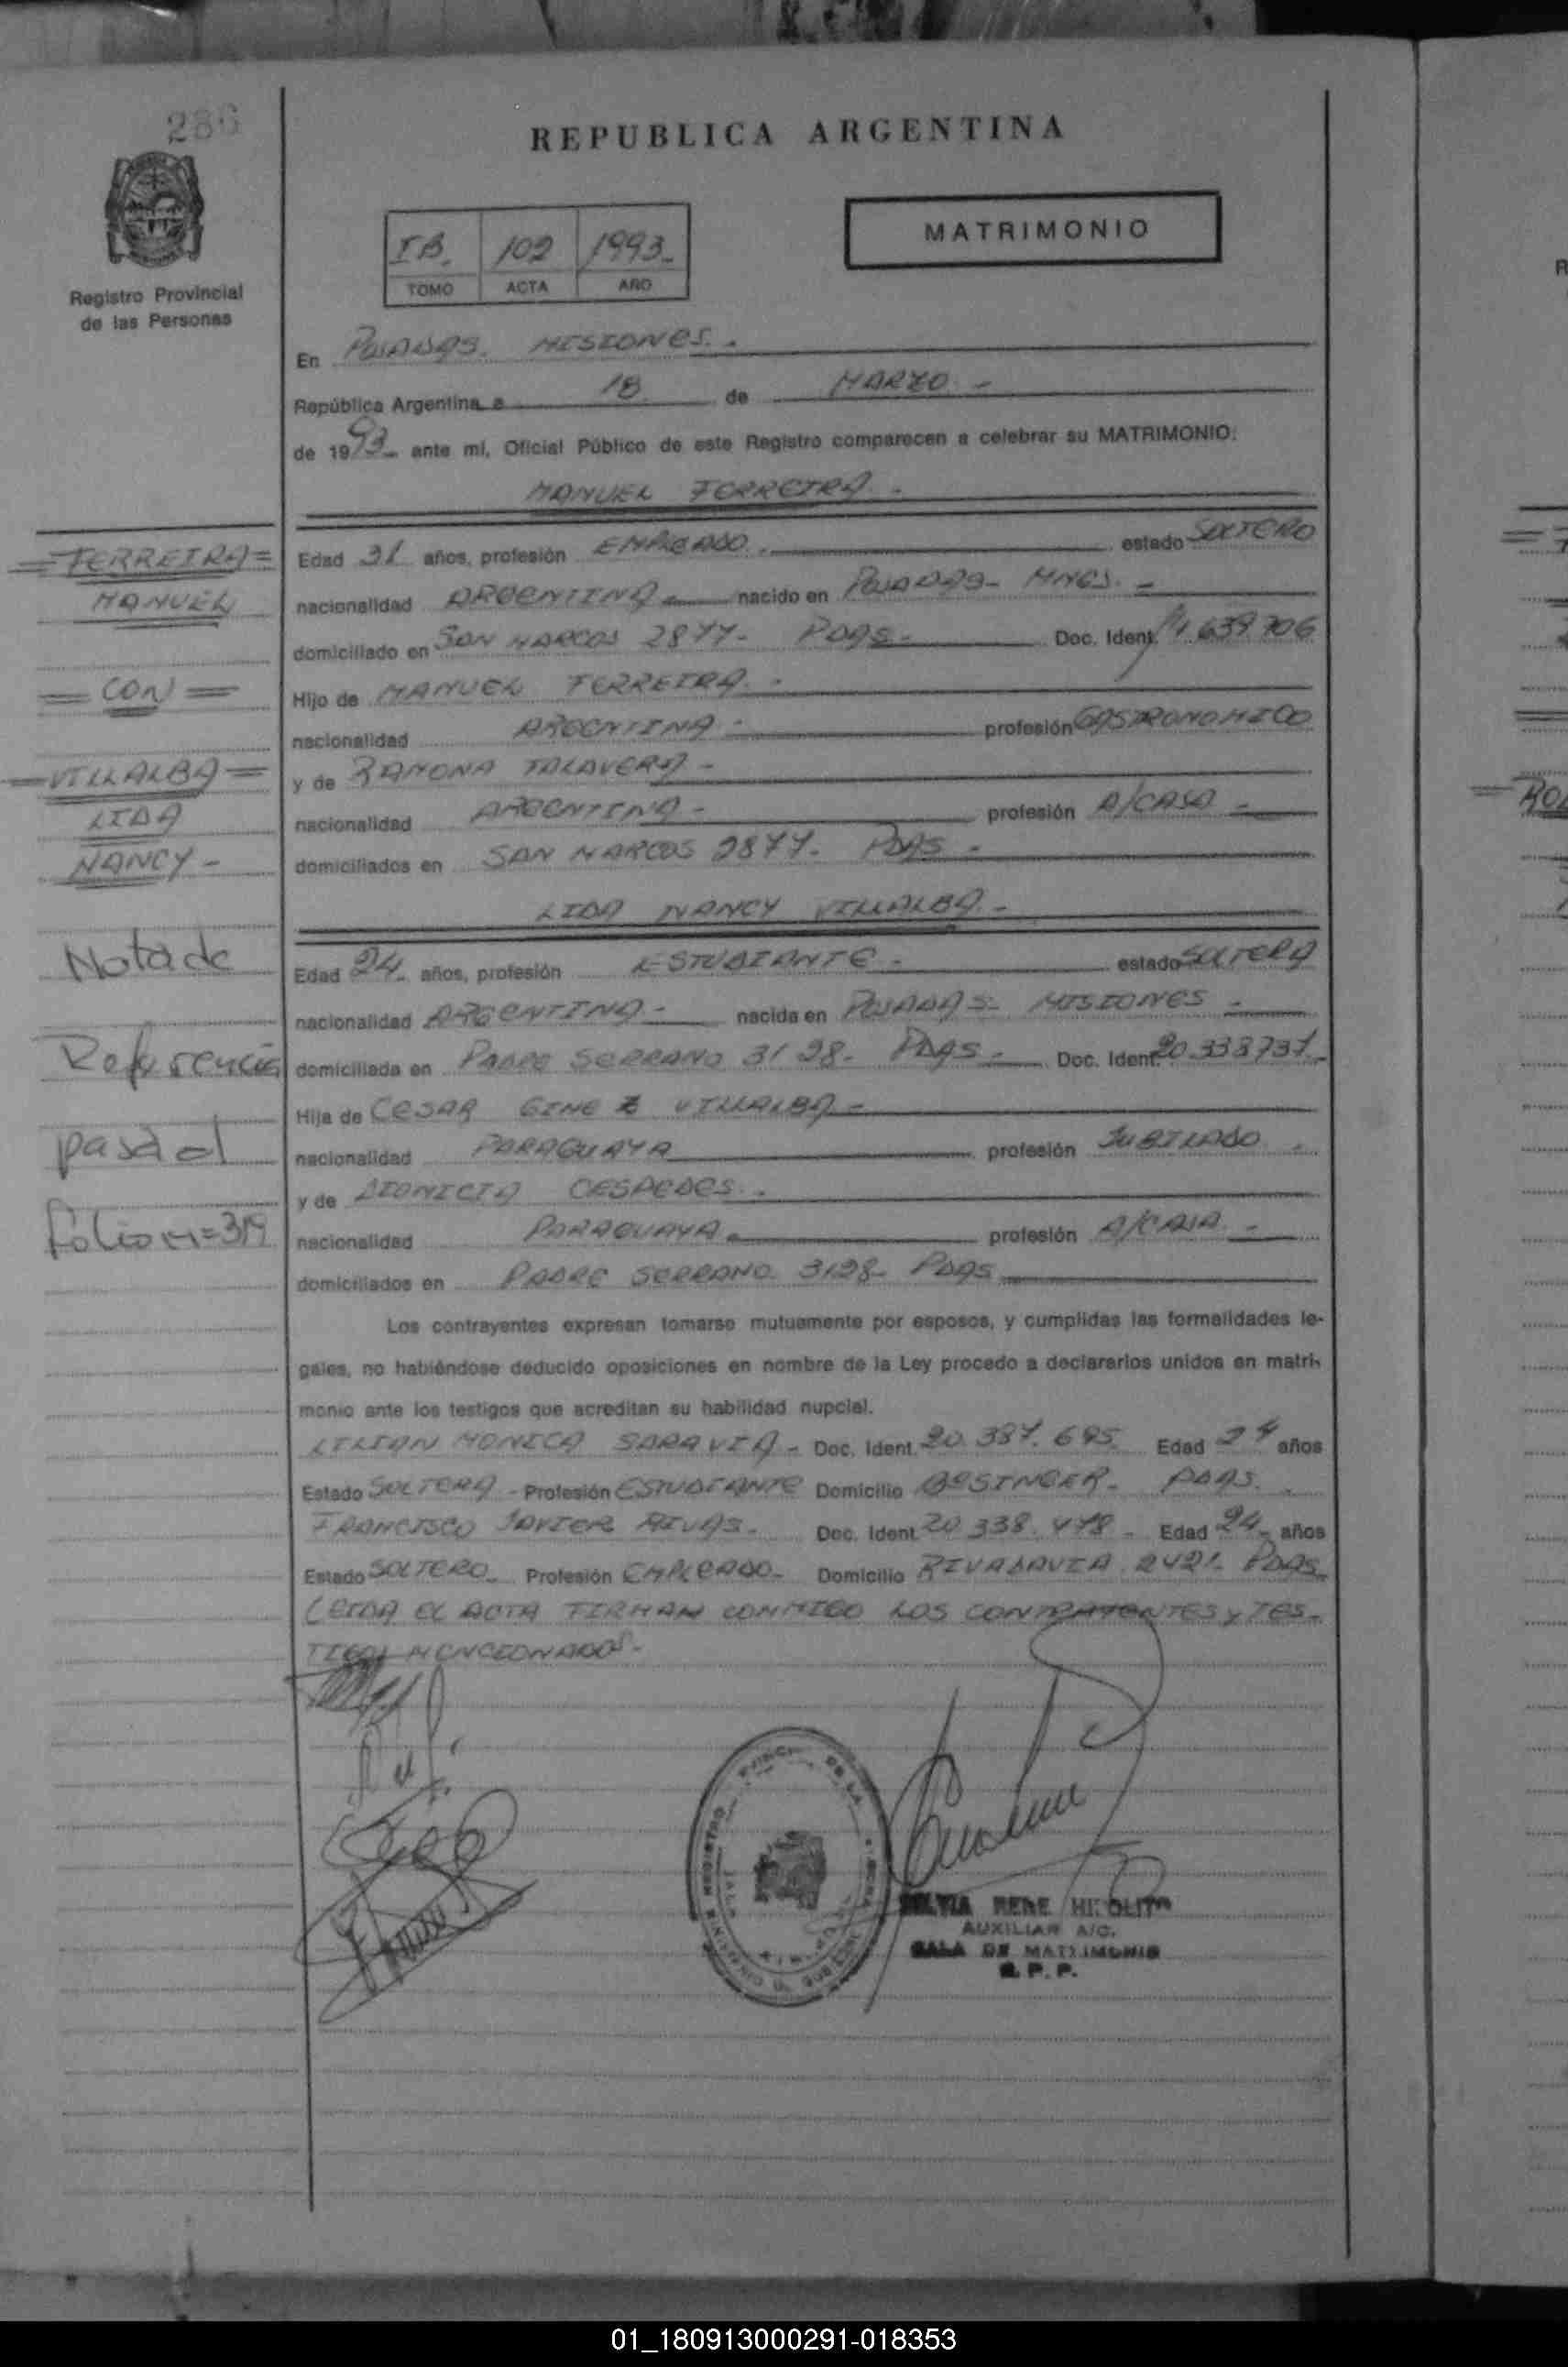 286
REPUBLICA ARGENTINA
Registro Provincial
de las Personas
IB. 102 1993.
TOMO ACTA AÑO
MATRIMONIO
En POSADAS. MISIONES.
República Argentina a 18 de MARZO
de 1993 ante mí, Oficial Público de este Registro comparecen a celebrar su MATRIMONIO:
MANUEL FERREIRA
=FERREIRA=
MANUEL
=CON=
=VILLALBA=
LIDA
NANCY-
Nota de
Referencia
pasa al
folio n=319
Edad 31 años, profesión EMPLEADO. estado SOLTERO
nacionalidad ARGENTINA nacido en POSADAS- MNES.-
domiciliado en SAN MARCOS 2877- PDAS- Doc. Ident. 14 639 706
Hijo de MANUEL FERREIRA.-
nacionalidad ARGENTINA- profesión GASTRONOMICO
y de RAMONA TALAVERA-
nacionalidad ARGENTINA- profesión A/CASA-
domiciliados en SAN MARCOS 2877. PDAS-
LIDA NANCY VILLALBA-
Edad 24 años, profesión ESTUDIANTE- estado SOLTERA
nacionalidad ARGENTINA- nacida en POSADAS- MISIONES-
domiciliada en PADRE SERRANO 3128- PDAS- Doc. Ident. 20.338737-
Hija de CESAR GINEZ VILLALBA-
nacionalidad PARAGUAYA profesión JUBILADO
y de DIONICIA CESPEDES.
nacionalidad PARAGUAYA profesión A/CASA-
domiciliados en PADRE SERRANO 3128- PDAS
Los contrayentes expresan tomarse mutuamente por esposos, y cumplidas las formalidades le-
gales, no habiéndose deducido oposiciones en nombre de la Ley procedo a declararlos unidos en matri-
monio ante los testigos que acreditan su habilidad nupcial.
LILIAN MONICA SARAVIA- Doc. Ident. 20.387.695 Edad 24 años
Estado SOLTERA- Profesión ESTUDIANTE Domicilio Bº SINGER- PDAS.
FRANCISCO JAVIER RIVAS- Doc. Ident. 20 338.478- Edad 24- años
Estado SOLTERO- Profesión EMPLEADO- Domicilio RIVADAVIA 2421- PDAS
LEIDA EL ACTA FIRMAN CONMIGO LOS CONTRAYENTES y TES-
TIGOS MENCIONADOS-
AUXILIAR A/C.
SALA DE MATRIMONIO
R.P.P.
01_180913000291-018353